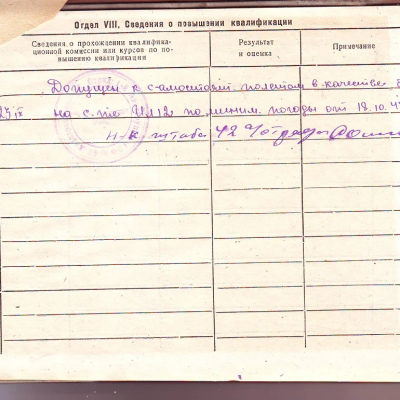 Отдел VIII. Сведения о повышении квалификации
Сведения о прохождении квалифика-
ционной комиссии или курсов по по-
вышению квалификации
Результат
и оценка
Примечание
Допущен к самостоят. полетам в качестве
23/IX на с-те Ил12 по миним. погоды от 18.10.4
Н-к штаба 42 отряда